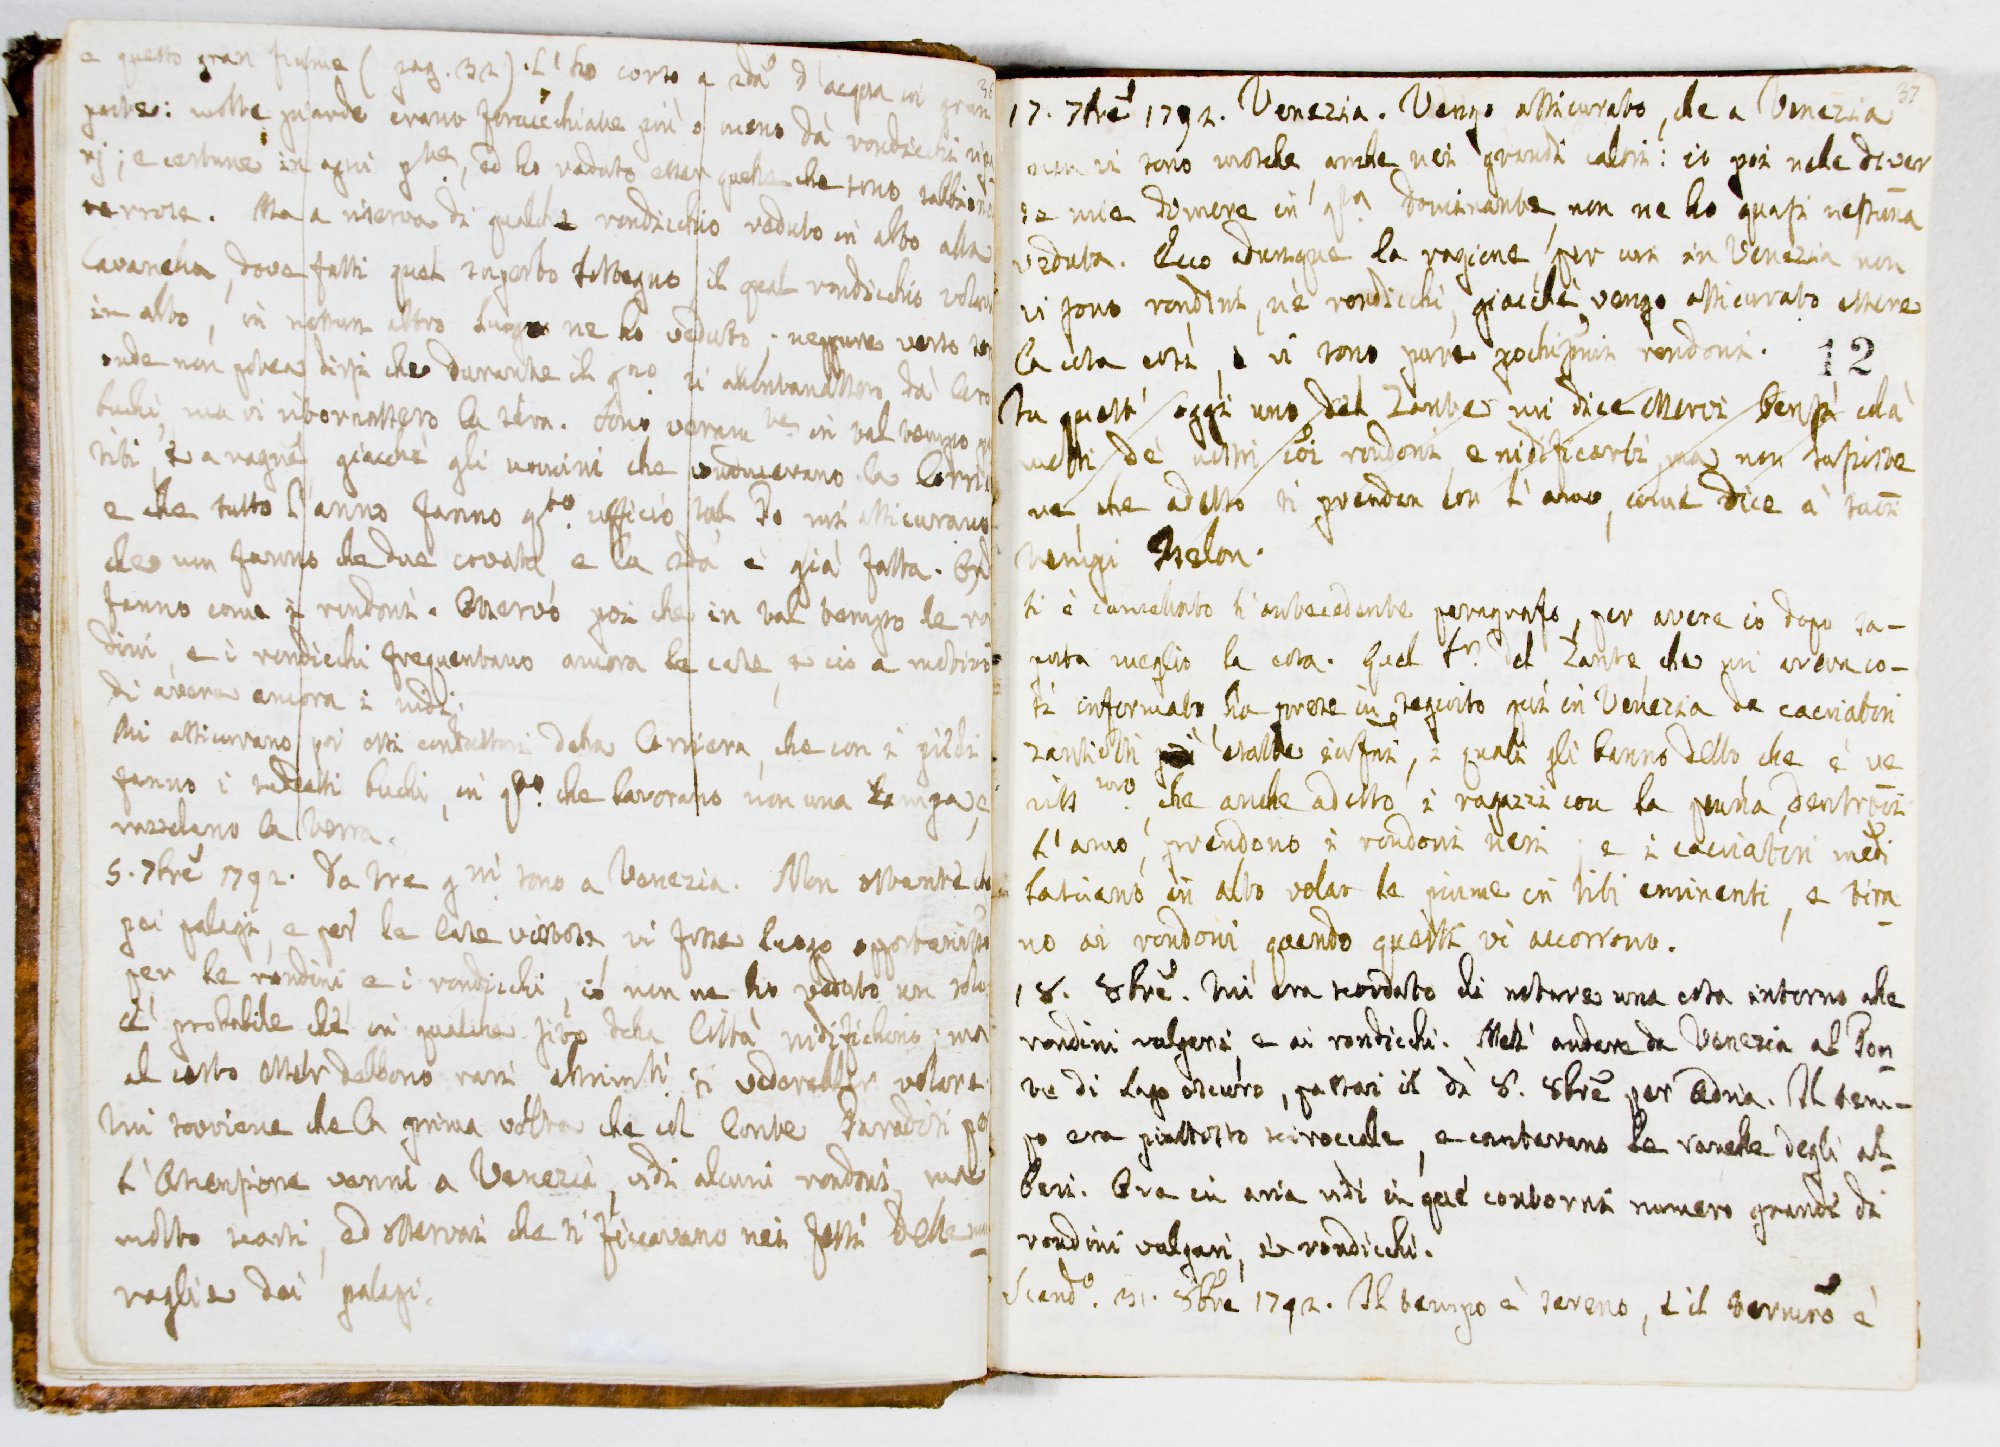 36
e questo gran fiume (pag. 32). L'ho corso a 2da d'acqua in gran
parte: molte guarde erano forucchiate più o meno da rondicchi ripa
rj; e certune in ogni pte, ed ho veduto esser quelle che sono sabbiond
terrose. Ma a riserva di qualche rondicchio veduto in alto alla
Cavanella, dove fatti quel sostegno il qual rondicchio volava
in alto, in nessun altro luogo ne ho veduto, neppure verso
onde non potea dirsi che durante il gno si allontanassero da loro
buchi, ma vi ritornassero la sera. Sono veramte in tal tempo
siti, e a ragne, giacchè gli uomini che conducevano la Corri
e che tutto l'anno fanno qto ufficio sul Po mi assicurano
che non fanno che due covate, e la 2da è già fatta.
fanno come i rondoni. Osservo poi che in tal tempo le ro
dini, e i rondicchi frequentano ancora le case, e ciò a motivo
di avere ancora i nidi.
Mi assicurano poi essi conduttori della Corriera, che con i piedi
fanno i buchi, in qto che lavorano con una zampa, e
razzolano la terra.
5. 7bre 1792. Da tre gni sono a Venezia. Non ostante che
pei palagi, e per le case vistose, vi fosse luogo opportuniss
per le rondini e i rondicchi, io non ne ho veduto un solo
È probabile che in qualche sito della Città nidifichino; ma
al certo esser debbono rari altrimti si vederebber volare.
Mi sovviene che la prima volta che col Conte Paradisi per
l'Ascensione venni a Venezia, vidi alcuni rondoni, ma
molto scarsi, ed osservai che si ficcavano nei fessi delle mu
raglie dei palagi.
37
17. 7bre 1792. Venezia. Vengo assicurato, che a Venezia
non vi sono mosche, anche nei grandi calori: io poi nelle diver
se mie dimore in qta dominante, non ne ho quasi nessuna
veduta. Ecco adunque la ragione, per cui in Venezia non
vi sono rondini, nè rondicchi, giacchè vengo assicurato essere
la cosa così, e vi sono pure pochissimi rondoni.
12
Su quest' oggi uno del Zante mi dice esservi bensì colà
molti de nostri rondoni e nidificarvi, ma non sussiste
ne che adesso si prendan con l'amo, come dice a suoi
tempi Belon.
Si è cancellato l'antecedente paragrafo, per avere io dopo sa-
puta meglio la cosa. Quel Sr. del Zante, che mi aveva co-
sì informato, ha prese in seguito qui in Venezia da cacciatori
zantiotti esatte, i quali gli hanno detto che è ve
riss mo, che anche adesso i ragazzi con la piuma, dentrovi
l'amo, prendono i rondoni neri; e i cacciatori medi
lasciano in alto volar le piume in siti eminenti, e tira
no ai rondoni quando questi vi accorrono.
18. 8bre. Mi era scordato di notare una cosa intorno alle
rondini volgari, e ai rondicchi. Nell' andare da Venezia al Pon
te di Lago oscuro, passai il dì 8. 8bre per Adria. Il tem-
po era piuttosto sciroccale, e cantavano le ranelle degli al-
beri. Ora in aria vidi in que' contorni numero grande di
rondini volgari, e rondicchi.
Scando. 31. 8bre 1792. Il tempo è sereno, e il termro è